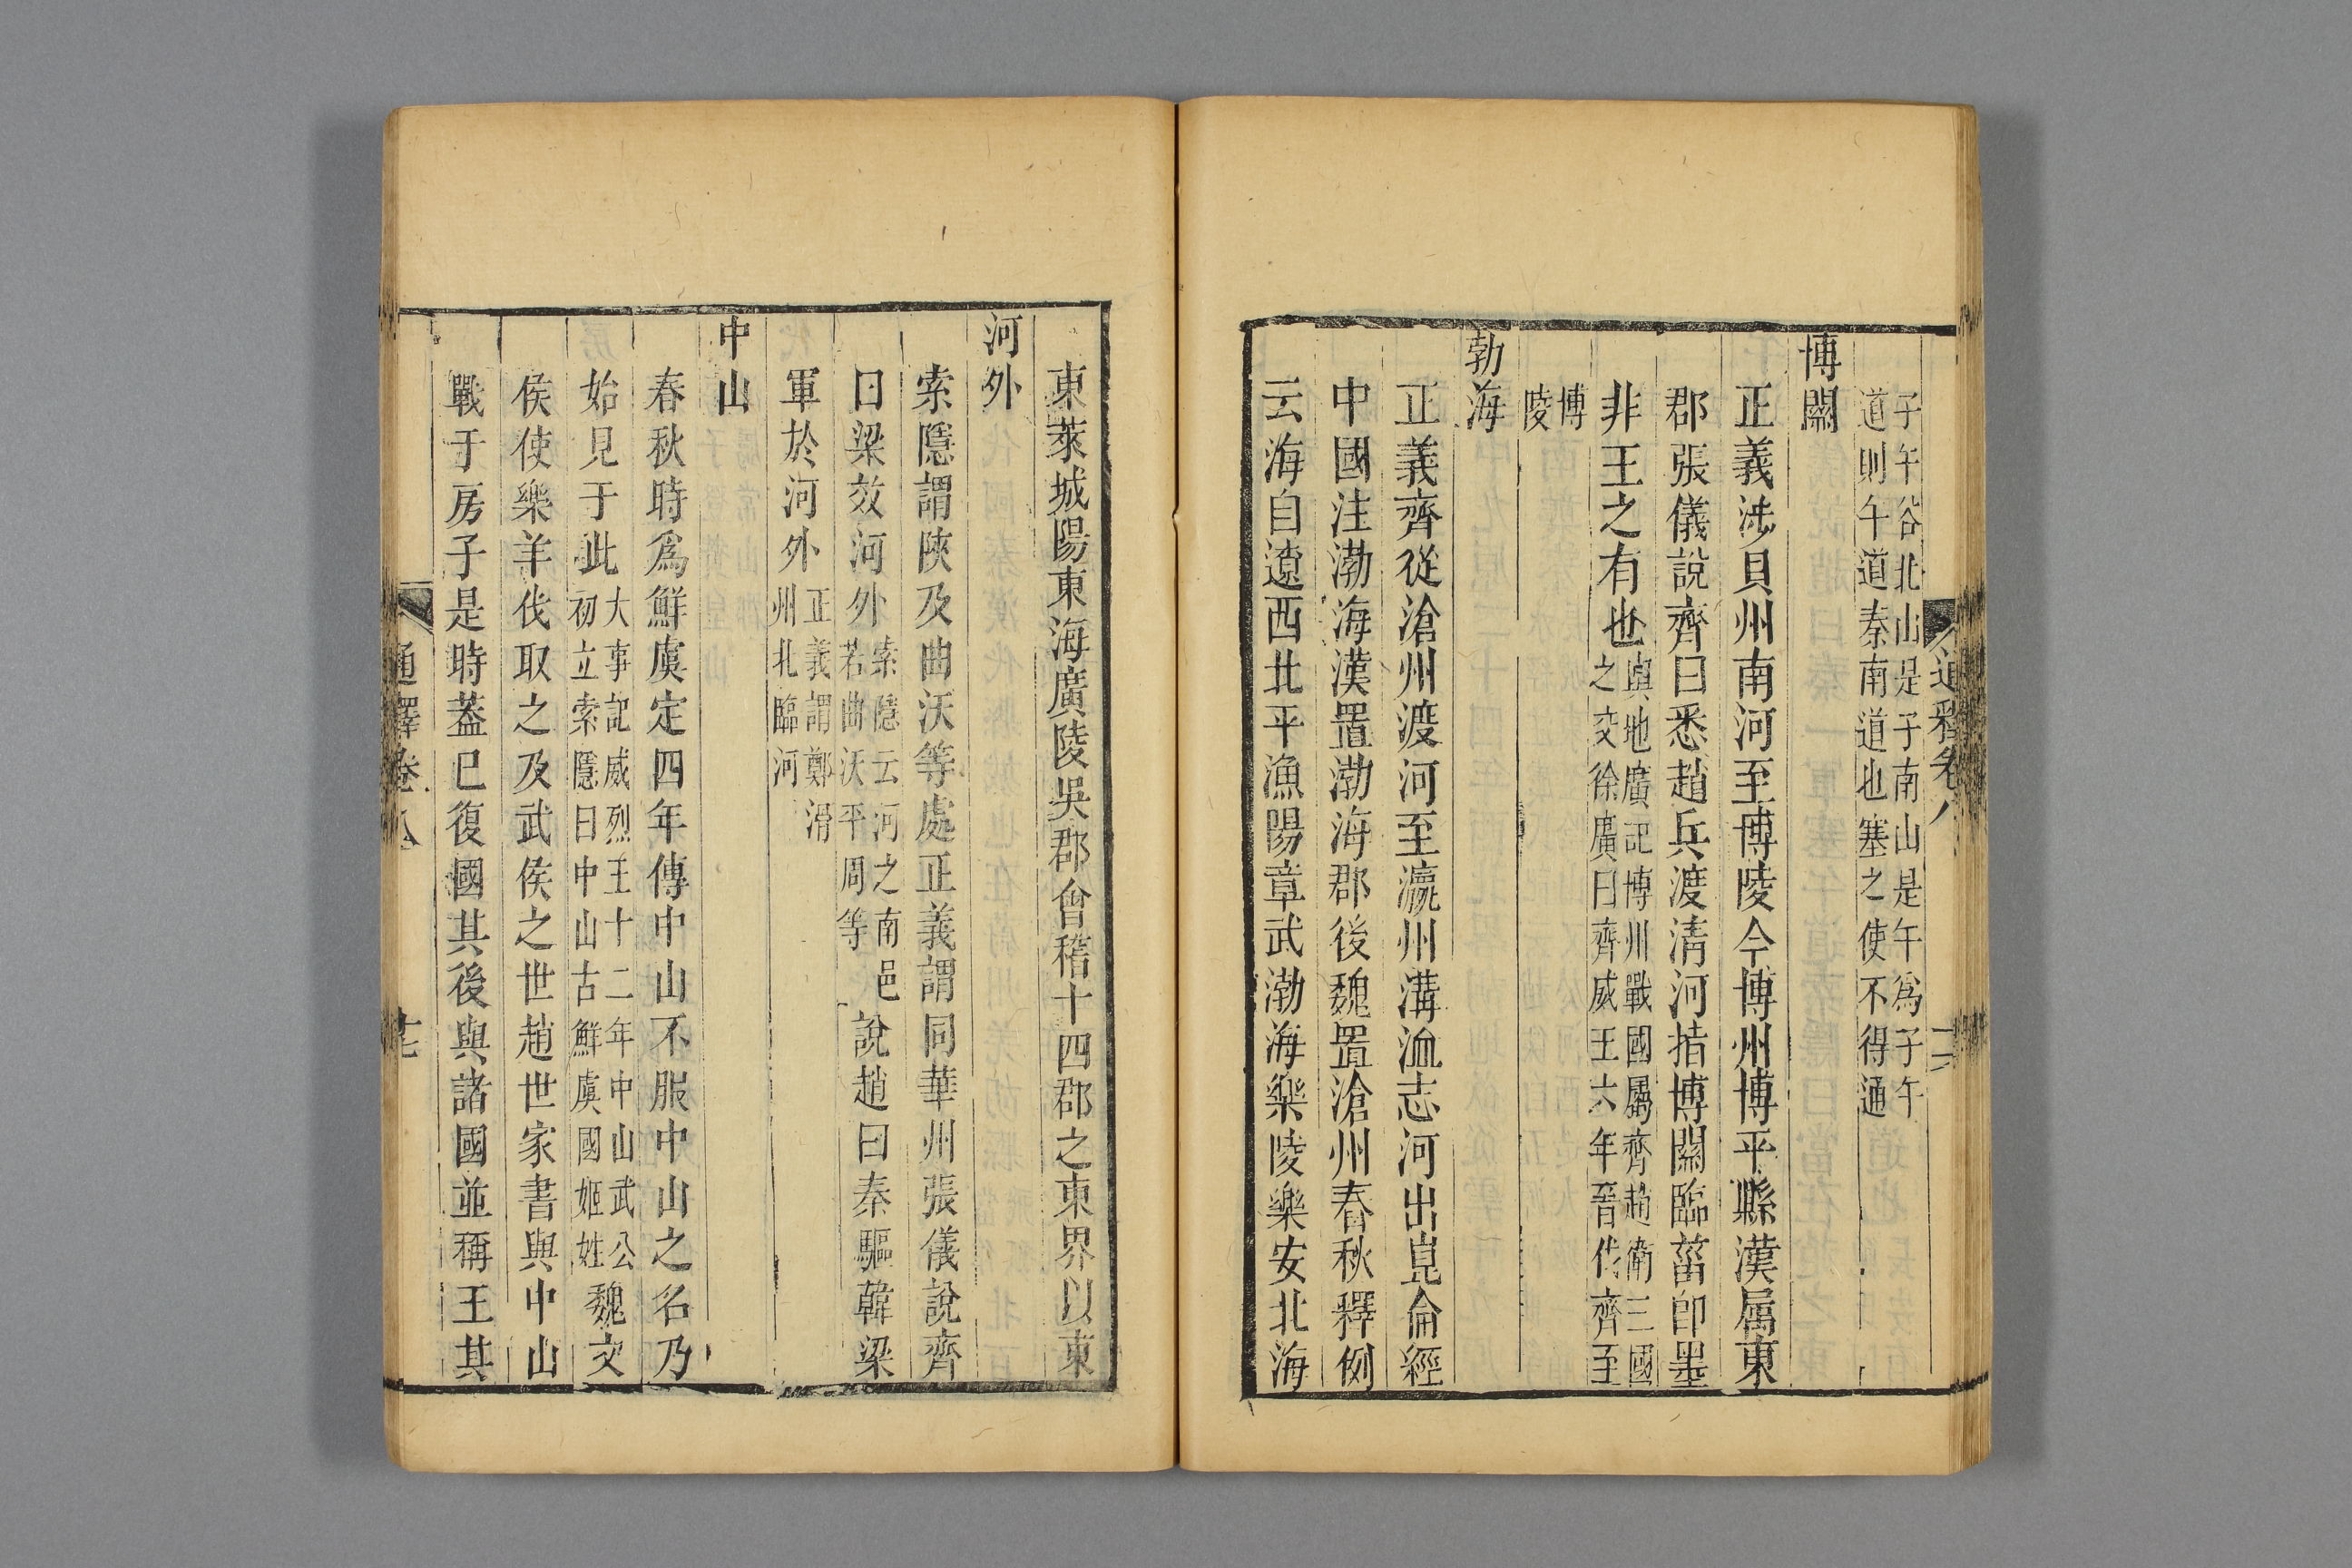 通釋卷八
子午谷北山是子南山是午爲子午
道則午道秦南道也塞之使不得通
博關
正義涉貝州南河至博陵今博州博平縣漢属東
郡張儀說齊曰悉趙兵渡清河指博關臨菑卽墨
非王之有也
輿地廣記博州戰國屬齊趙衛三國
之交徐廣曰齊威王六年晉伐齊至
博
陵
勃海
正義齊從滄州渡河至瀛州溝洫志河出崑侖經
中國注渤海漢置渤海郡後魏置滄州春秋釋例
云海自遼西北平漁陽章武渤海樂陵樂安北海
東萊城陽東海廣陵吳郡會稽十四郡之東界以東
河外
索隱謂陝及曲沃等處正義謂同華州張儀說齊
曰梁效河外
索隱云河之南邑
若曲沃平周等
說趙曰秦驅韓梁
軍於河外
正義謂鄭滑
州北臨河
中山
春秋時爲鮮虞定四年傳中山不服中山之名乃
始見于此
大事記威烈王十二年中山武公
初立索隱曰中山古鮮虞國姬姓
魏文
侯使樂羊伐取之及武侯之世趙世家書與中山
戰于房子是時蓋已復國其後與諸國並稱王其
通釋卷八
十七